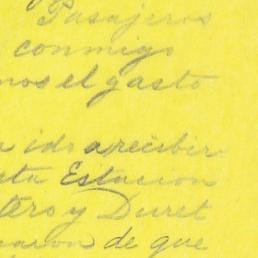 y Pasajeros
conmigo
mos el gasto
ido a recibir
sta Estacion
tero y Duret
de que